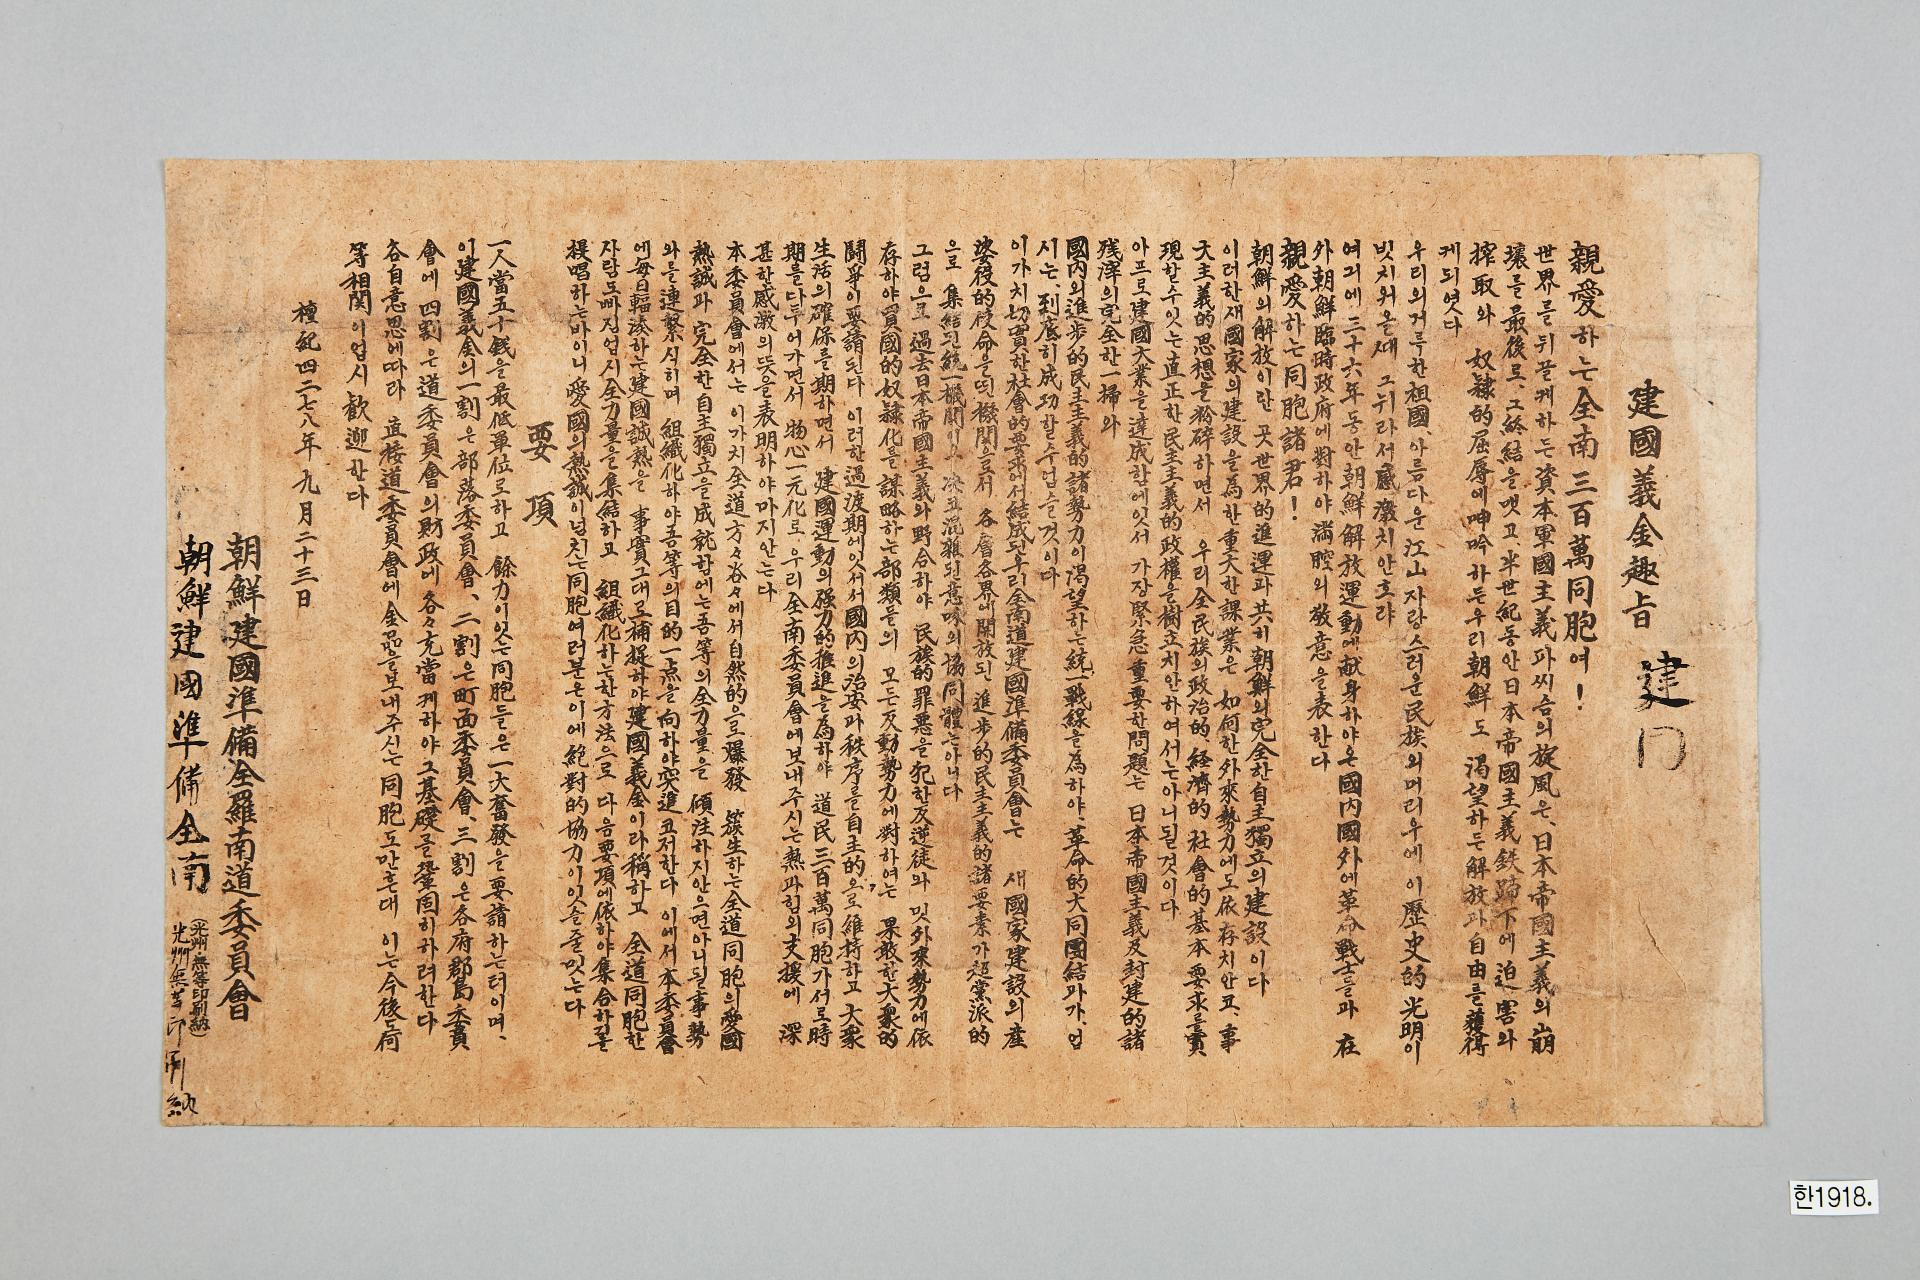 建國義金趣旨
建
親愛하는全南三百萬同胞여!
世界를뒤끌케하든資本軍國主義파씨슴의旋風은、日本帝國主義의崩
壞를最後로、그終結을맷고、半世紀동안日本帝國主義鉄蹄下에迫害와
搾取와 奴隸的屈辱에呻吟하든우리朝鮮도 渴望하든解放과自由를獲得
케되엿다
우리의거루한祖國、아름다운江山자랑스러운民族의머리우에 이歷史的光明이
빗치워올때 그뉘라서感激치안흐랴
여긔에三十六年동안朝鮮解放運動에献身하야온國內國外에革命戰士들과 在
外朝鮮臨時政府에對하야滿腔의敬意을表한다
親愛하는同胞諸君!
朝鮮의解放이란 곳世界的進運과共히朝鮮의完全한自主獨立의建設이다
이러한새國家의建設을為한重大한課業은 如何한外來勢力에도依存치안코、事
大主義的思想을粉碎하면서 우리全民族의政治的經濟的社會的基本要求를實
現할수잇는直正한民主主義的政權을樹立치안하여서는아니될것이다
아프로建國大業을達成함에잇서 가장緊急重要한問題는 日本帝國主義及封建的諸
残滓의完全한一掃와
國內의進步的民主主義的諸勢力이渴望하는統一戰線을為하야、革命的大同團結과가、업
시는、到底히成功할수업슬것이다
이가치切實한社會的要求에서結成된우리全南道建國準備委員會는 새國家建設의産
婆役的使命을띈機関으로서 各層各界에開放된 進步的民主主義的諸要素가超黨派的
으로 集結된統一機関이요 決코混雜된意味의協同體는아니다
그럼으로 過去日本帝國主義와野合하야 民族的罪惡을犯한反逆徒와 밋外來勢力에依
存하야買國的奴隸化를謀略하는部類들의 모든反動勢力에對하여는 果敢한大衆的
鬪爭이要請된다 이러한過渡期에잇서서國內의治安과秩序를自主的으로維持하고 大衆
生活의確保를期하면서 建國運動의强力的推進을為하야 道民三百萬同胞가서로時
期를다투어가면서 物心一元化로、우리全南委員會에보내주시는熱과힘의支援에 深
甚한感激의뜻을表明하야마지안는다
本委員會에서는 이가치全道方々谷々에서自然的으로爆發 簇生하는全道同胞의愛國
熱誠과 完全한自主獨立을成就함에는吾等의全力量을 傾注하지안으면아니될事勢
와를連繫식히며 組織化하야吾等의目的一点을向하야突進코저한다 이에서本委員會
에每日輻湊하는建國誠熱을 事實그대로捕捉하야建國義金이라稱하고 全道同胞한
사람도빠짐업시全力量을集結하고 組織化하는한方法으로 다음要項에依하야集合하길
提唱하는바이니愛國의熱誠이넘친는同胞여러분은이에絶對的協力이잇슬줄밋는다
要項
一人當五十錢을最低單位로하고 餘力이잇는同胞들은一大奮發을要請하는터이며、
이建國義金의一割은部落委員會、二割은町面委員會、三割은各府郡島委員
會에 四割은道委員會의財政에各々充當케하야그基礎를鞏固히하려한다
各自意思에따라 直接道委員會에金品을보내주신는同胞도만흔대 이는今後도何
等相関이업시歡迎한다
檀紀四二七八年九月二十三日
朝鮮建國準備全羅南道委員會
(光州無等印刷納)
朝鮮建國準備全南
光州無等印刷納
한1918.